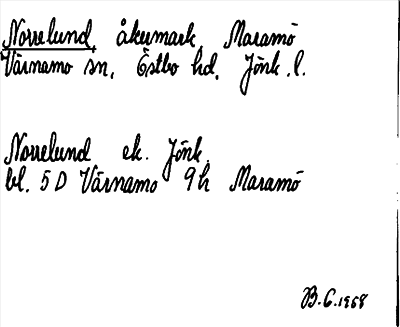 Norrelund, åkermark Maramö
Värnamo sn, Östbo hd, Jönk. l.
Norrelund ek. Jönk.
bl. 5 D Värnamo 9h Maramö
B.G. 1968